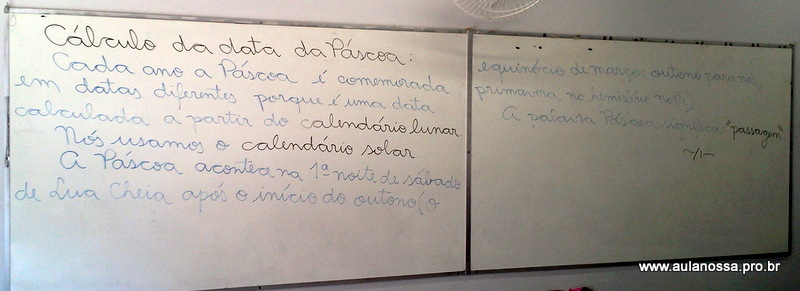 Cálculo da data da Páscoa:
Cada ano a Páscoa é comemorada
em datas diferentes porque é uma data
calculada a partir do calendário lunar.
Nós usamos o calendário solar.
A Páscoa acontece na 1ª noite de sábado
de Lua Cheia após o início do outono (o
equinócio de março: outono para nós,
primavera no hemisfério norte).
A palavra Páscoa significa "passagem".
www.aulanossa.pro.br